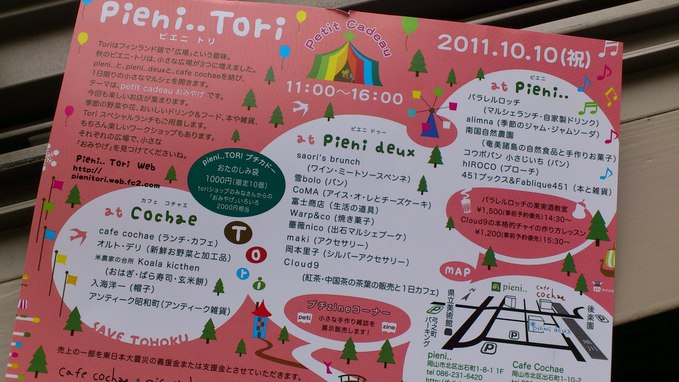 Pieni..Tori
ピエニ・トリ
Toriはフィンランド語で「広場」という意味。
秋のピエニ・トリは、小さな広場が3つに増えました。
pieni..と、pieni..deuxと、cafe cochaeを結び、
1日限りの小さなマルシェを開きます。
テーマは、petit cadeau おみやげ です。
今回も楽しいお店が集まります。
季節の野菜や花、おいしいドリンク&フード、本や雑貨、
Tori スペシャルランチもご用意します。
もちろん楽しいワークショップもあります。
それぞれの広場で、小さな
「おみやげ」を見つけてくださいね。
Pieni.. Tori Web
http://
pienitori.web.fc2.com
Petit Cadeau
11:00〜16:00
2011.10.10(祝)
at Pieni..
ピエニ
パラレルロッチ
(マルシェランチ・自家製ドリンク)
alimna (季節のジャム・ジャムソーダ)
南国自然農園
(奄美諸島の自然食品と手作りお菓子)
コウボパン 小さじいち (パン)
hIROCO (ブローチ)
451ブックス&Fablique451 (本と雑貨)
パラレルロッチの果実酒教室
¥1,500(事前予約優先)14:30〜
Cloud9の本格的チャイの作り方レッスン
¥1,200(事前予約優先)15:30〜
at Pieni deux
ピエニ ドゥー
saori's brunch
(ワイン・ミートソースペンネ)
雪bolo (パン)
CoMA (アイス・オ・レとチーズケーキ)
富士商店 (生活の道具)
Warp&co (焼き菓子)
薔薇nico (出石マルシェブーケ)
maki (アクセサリー)
岡本里子 (シルバーアクセサリー)
Cloud9
(紅茶・中国茶の茶葉の販売と1日カフェ)
pieni..TORI プチカドー
おたのしみ袋
1000円(限定10個)
toriショップのみなさんからの
「おみやげ」いろいろ
2000円相当
at Cochae
カフェ コチャエ
cafe cochae (ランチ・カフェ)
オルト・デリ (新鮮お野菜と加工品)
米農家の台所 Koala kicthen
(おはぎ・ばら寿司・玄米餅)
入海洋一 (帽子)
アンティーク昭和町(アンティーク雑貨)
Tori
SAVE TOHOKU
プチzineコーナー
小さな手作り雑誌を
展示販売します!
peti
zine
売上の一部を東日本大震災の義援金または支援金とさせていただきます。
MAP
pieni..
cafe
cochae
PIENI DEUX
県立美術館
パーキング
後楽園
P
P
P
pieni..
岡山市北区出石町1-8-1 1F
tel 086-231-6420
Cafe Cochae